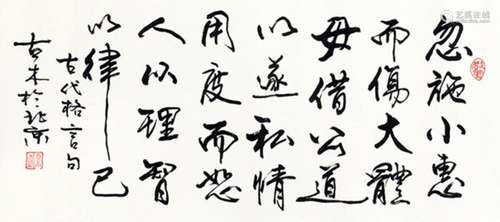 忽施小惠
而傷大體
毋借公道
以遂私情
用度而恕
人以理智
以律己
古代格言句
古木於北京